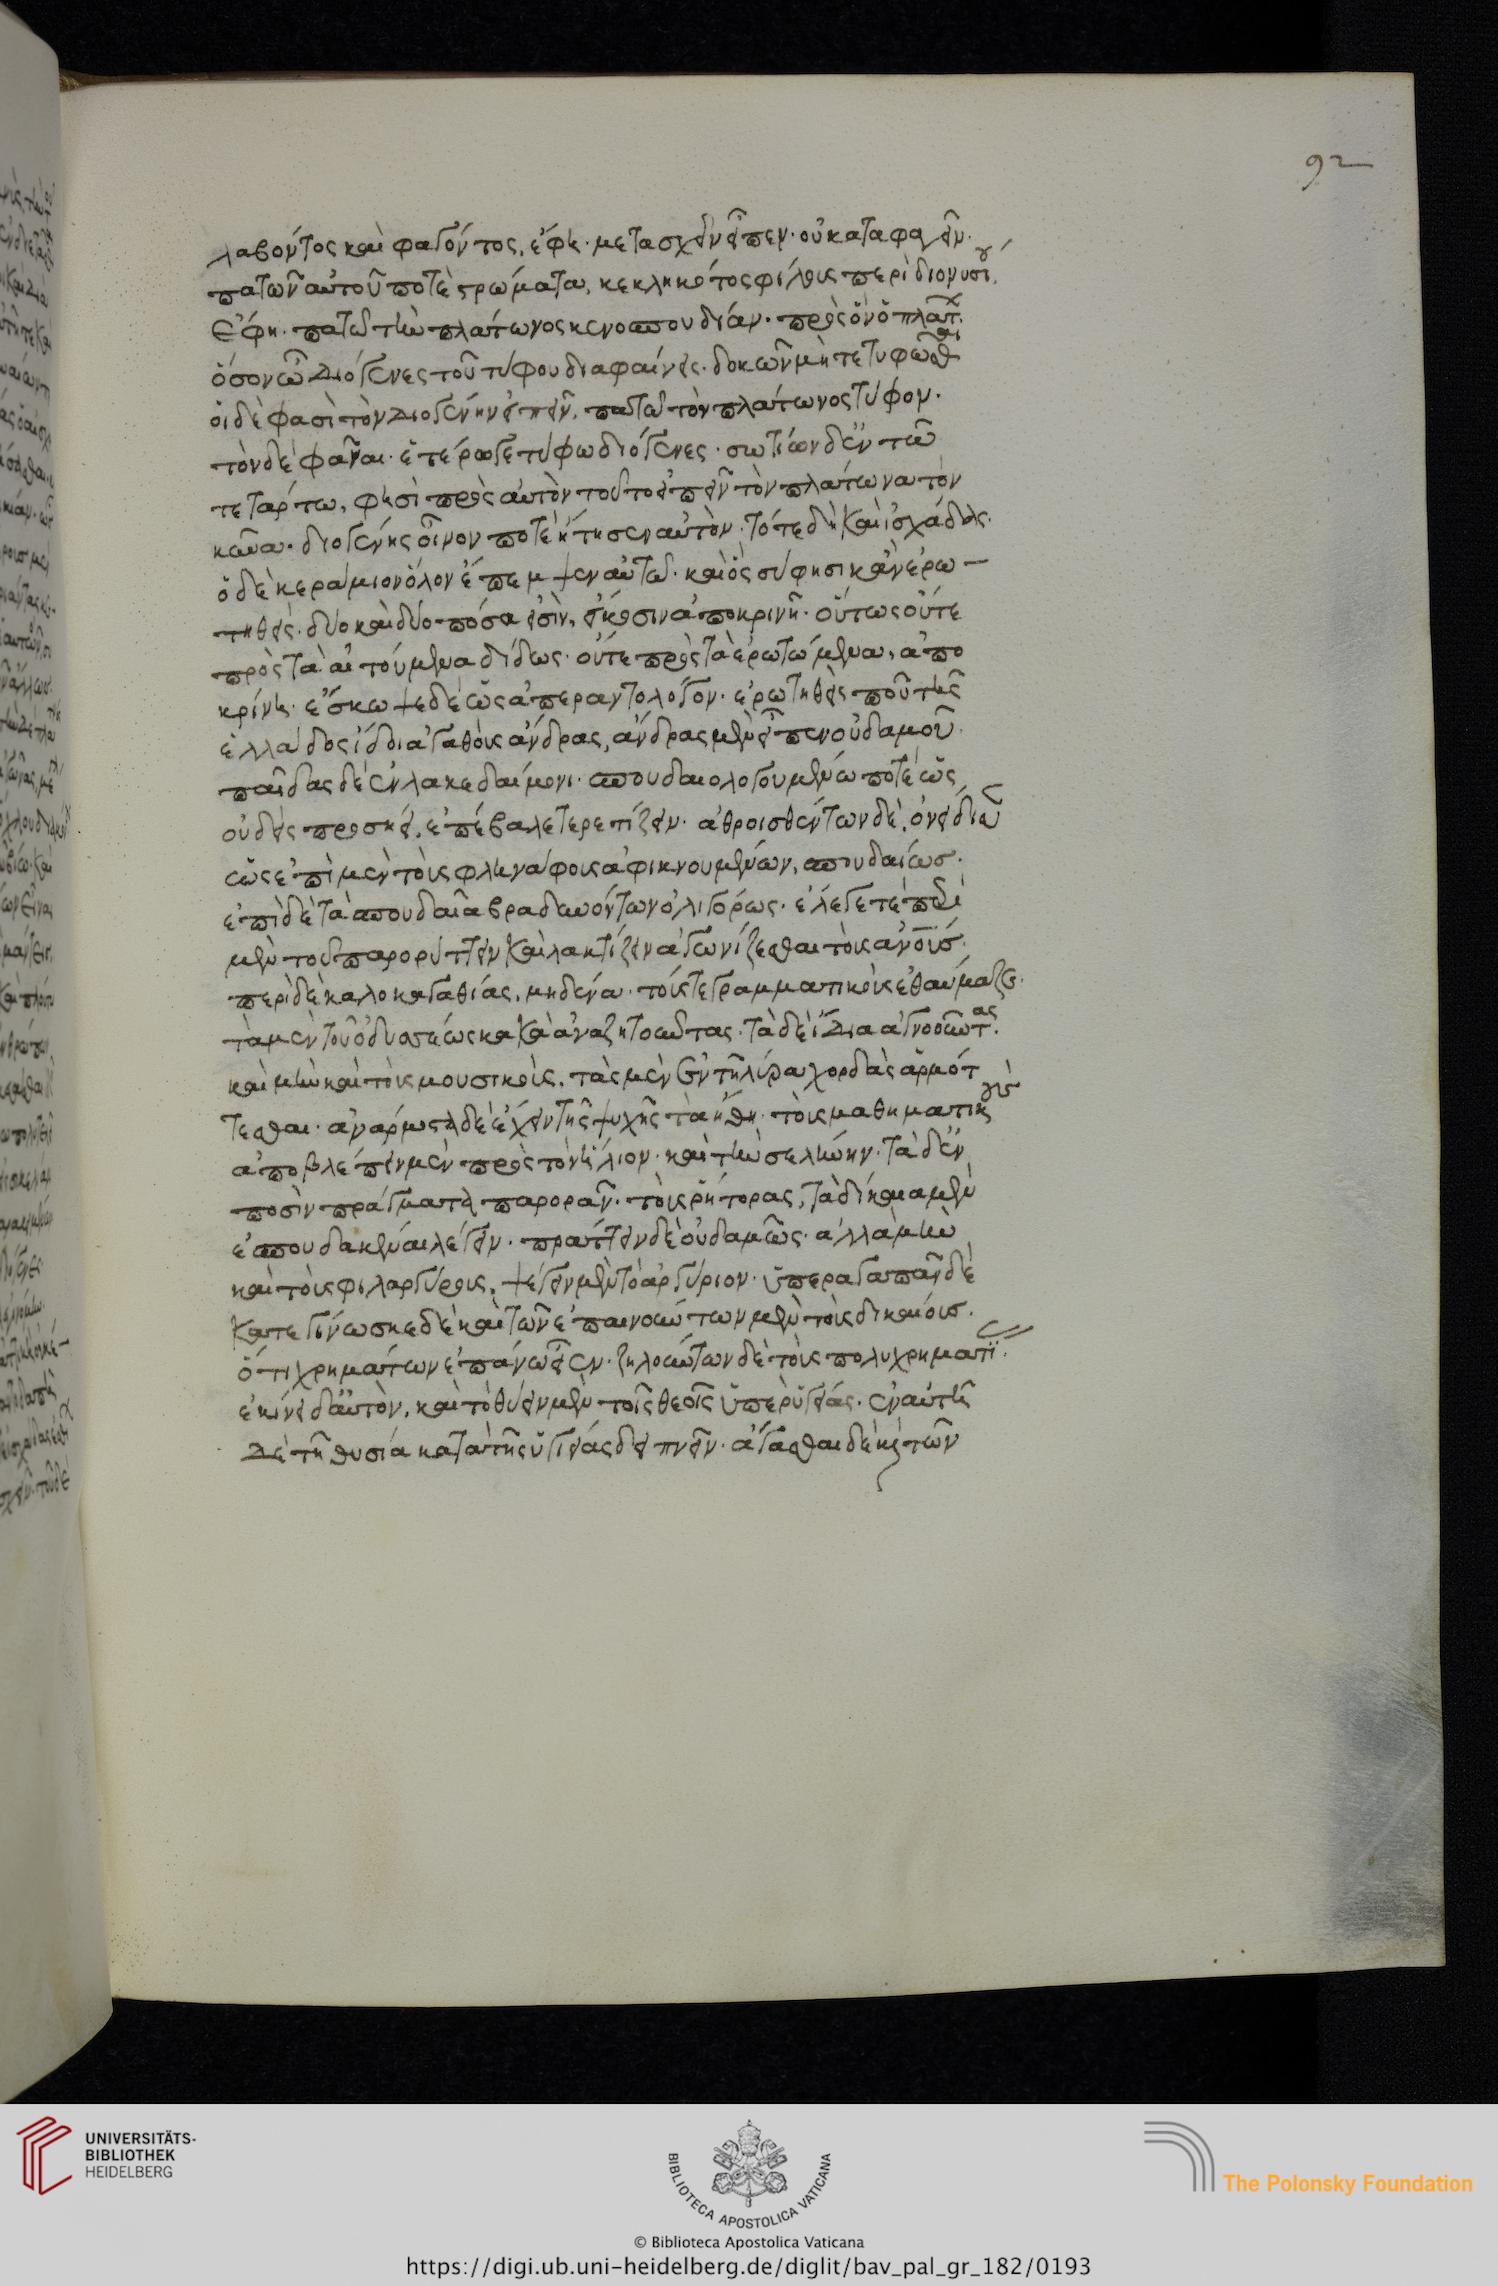 92
λαβόντος καὶ φαγόντος, ἔφη· μετασχεῖν εἶπεν· οὐ καταφαγεῖν·
πατῶν αὐτοῦ ποτὲ στρώματα, κεκληκότος φίλους περὶ διονυσίου,
ἔφη· πατῶ τὴν πλάτωνος κενοσπουδίαν· πρὸς ὃν ὁ πλάτ.
ὅσον ὦ διόγενες τοῦ τύφου διαφαίνεις· δοκῶν μὴ τετυφῶσθαι
οἱ δὲ φασὶ τὸν διογένην εἰπεῖν, πατῶ τὸν πλάτωνος τύφον·
τὸν δὲ φάναι· ἑτέρω γε τύφω διόγενες· σωτίων δ' ἐν τῶ
τετάρτω, φησὶ πρὸς αὐτὸν τοῦτο εἰπεῖν τὸν πλάτωνα τὸν
κῦνα· διογένης οἶνον ποτὲ ἤτησεν αὐτὸν· τότε δὴ καὶ ἰσχάδας·
ὁ δὲ κεράμιον ὅλον ἔπεμψεν αὐτῶ· καὶ ὃς σύ φησι κἂν ἐρω-
τηθεὶς· δύο καὶ δύο πόσα εἰσὶν, εἴκοσιν ἀποκρινῆ· οὕτως οὔτε
πρὸς τὰ αἰτούμενα δίδως· οὔτε πρὸς τὰ ἐρωτώμενα, ἀπο
κρίνη· ἔσκωψε δὲ ὡς ἀπεραντολόγον· ἐρωτηθεὶς ποῦ τῆς
ἑλλάδος ἴδοι ἀγαθοὺς ἄνδρας, ἄνδρας μὲν εἶπεν οὐδαμοῦ·
παῖδας δὲ ἐν λακεδαίμονι· σπουδαιολογουμένω ποτέ ὡς
οὐδεὶς προσήει, ἐπέβαλε τερετίζειν· ἀθροισθέντων δὲ, ὀνείδισεν
ὡς ἐπὶ μὲν τοὺς φληνάφους ἀφικνουμένων, σπουδαίως·
ἐπὶ δὲ τὰ σπουδαῖα βραδυνόντων ὀλιγόρως· ἔλεγέ τε περὶ
μὲν τοῦ παρορύττειν καὶ λακτίζειν ἀγωνίζεσθαι τοὺς ἀνους·
περὶ δὲ καλοκαγαθίας, μηδένα· τούς τε γραμματικοὺς ἐθαύμαζε·
τὰ μὲν τοῦ ὀδυσσέως κακὰ ἀναζητοῦντας· τὰ δὲ ἴδια ἀγνοοῦντας·
καὶ μὴν καὶ τοὺς μουσικοὺς, τὰς μὲν ἐν τῆ λύρα χορδὰς ἁρμότ
τεσθαι· ἀνάρμοστα δὲ ἔχειν τῆς ψυχῆς τὰ ἤθη· τοὺς μαθηματικοὺς
ἀποβλέπειν μὲν πρὸς τὸν ἥλιον· καὶ τὴν σελήνην· τὰ δ' ἐν
ποσὶν πράγματα παρορᾶν· τοὺς ῥήτορας, τὰ δίκαια μὲν
ἐσπουδακέναι λέγειν· πράττειν δὲ οὐδαμῶς· ἀλλὰ μὴν
καὶ τοὺς φιλαργύρους, ψέγειν μὲν τὸ ἀργύριον· ὑπεραγαπᾶν δὲ
κατεγίνωσκε δὲ καὶ τῶν ἐπαινούντων μὲν τοὺς δικαίους·
ὅτι χρημάτων ἐπάνω εἶεν· ζηλούντων δὲ τοὺς πολυχρημάτους·
ἐκίνει δ' αὐτὸν, καὶ τὸ θύειν μὲν τοῖς θεοῖς ὑπὲρ ὑγείας· ἐν αὐτῆ
δὲ τῆ θυσία κατὰ τῆς ὑγιείας δειπνεῖν· ἄγασθαι δὲ καὶ τῶν
UNIVERSITÄTS-
BIBLIOTHEK
HEIDELBERG
BIBLIOTECA APOSTOLICA VATICANA
© Biblioteca Apostolica Vaticana
The Polonsky Foundation
https://digi.ub.uni-heidelberg.de/diglit/bav_pal_gr_182/0193